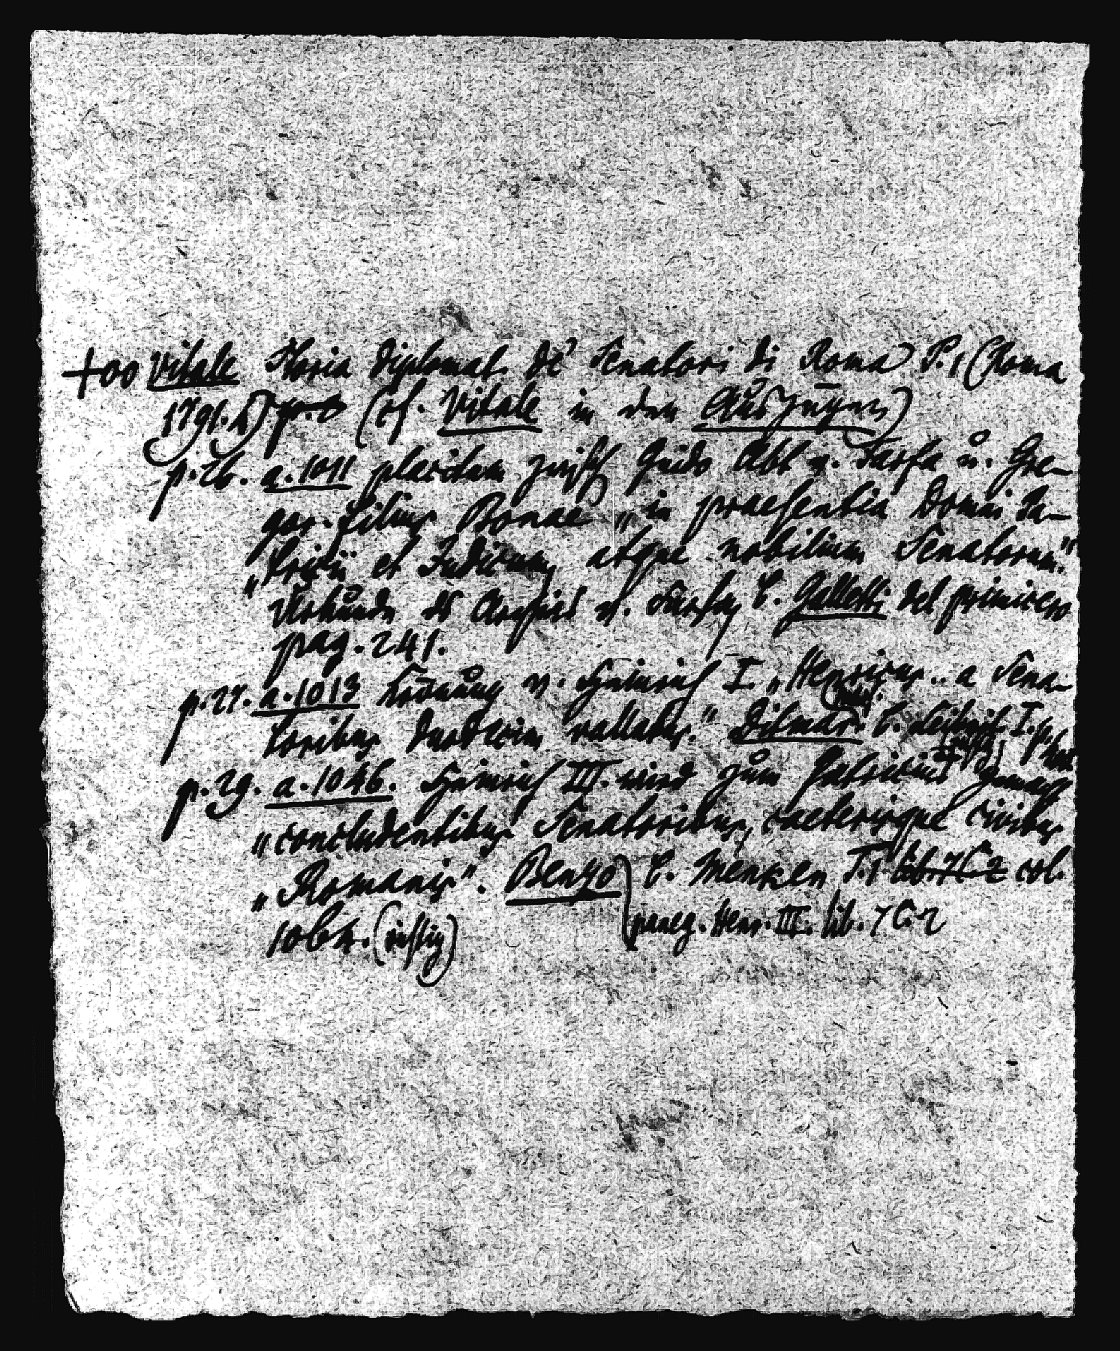 +00 Vitale Storia diplomat. de' Senatori di Roma P. 1 (Roma
1791. 4) (cf. Vitale in den Auszügen)
p. 26. a. 1011 placitum zwisch Guido Abt v. Farfa u. Gre-
gor. filius Bonae „in praesentia Domni Pa-
„tricii et Judicum atque nobilium Senatorum."
Urkunde des Archivs v. Farfa b. Galletti del primicero
pag. 241.
p. 27. a. 1013 Krönung v. Heinrich I „Henricus .. a Sena-
toribus duodecim vallatus." Ditmar. b. Leibnitz I.
p. 29. a. 1046. Heinrich III. wird zum Patricius
„concludentibus Senatoribus, caeterisque civibus
„Romanis". Benzo b. Menken T. 1 lib. 7 C. 2 col.
1064. (richtig) paneg. Henr. III. lib. 7 C. 2